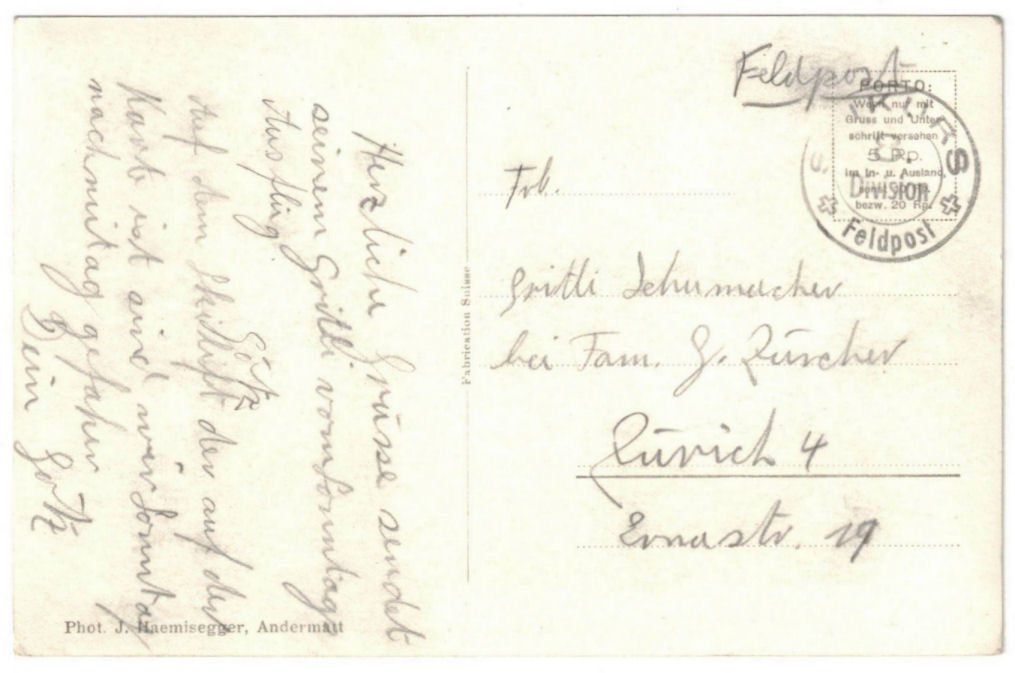 Herzliche Grüsse sendet
seinem Gritli vom Sonntag
Ausflug
Götz
Auf dem Skilift der auf der
Karte ist sind wir Sonntag
nachmittag gefahren
Dein Götz
Phot. J. Haemisegger, Andermatt
Fabrication Suisse
Feldpost
PORTO:
Wenn nur mit
Gruss und Unter-
schrift versehen
5 Rp.
im In- u. Ausland,
bezw. 20 Rp.
KURS
Division
Feldpost
Frl.
Gritli Schumacher
bei Fam. G. Zürcher
Zürich 4
Ernastr. 19